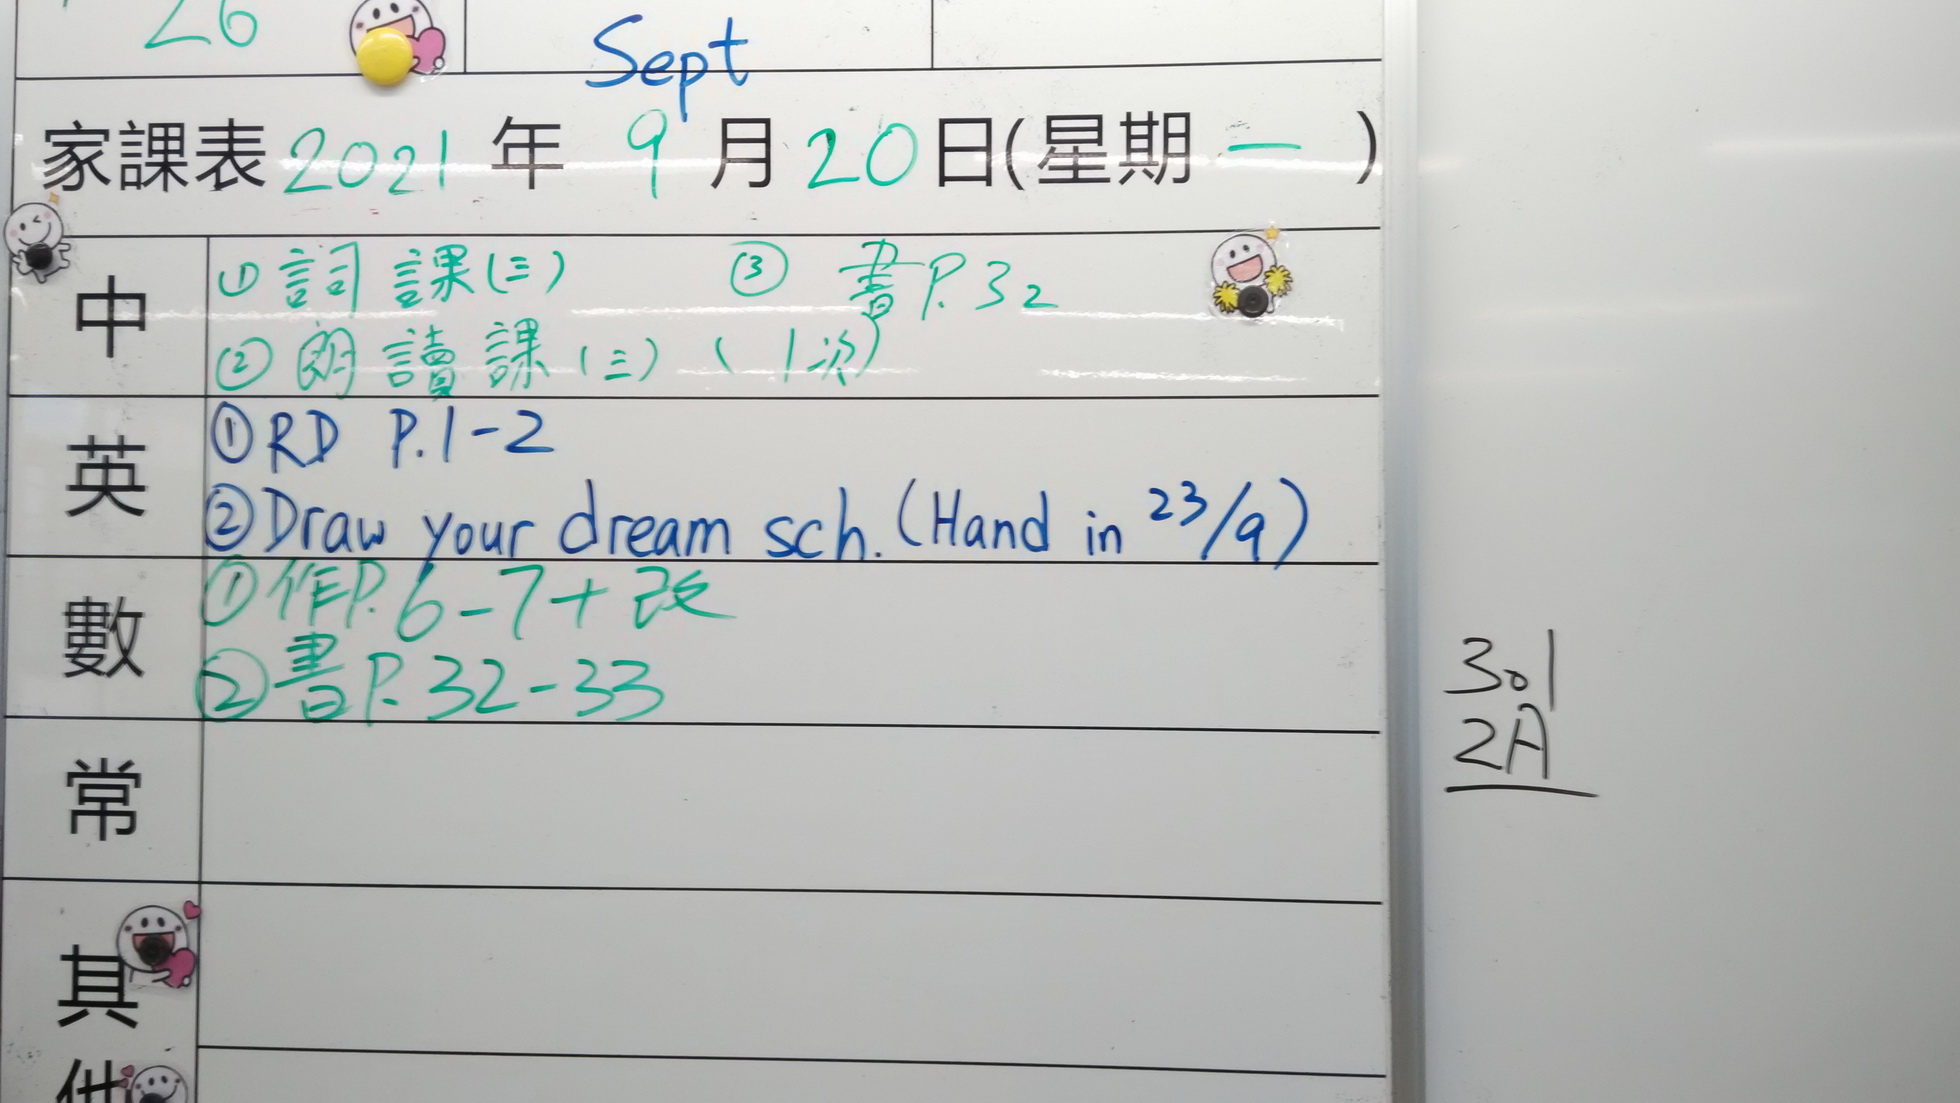 26
Sept
家課表 2021 年 9 月 20 日(星期 一 )
中
① 詞 課(三) ③ 書P.32
② 朗讀課(三) (1次)
英
① RD P.1-2
② Draw your dream sch. (Hand in 23/9)
數
① 作P.6-7+改
② 書P.32-33
常
其
他
301
2A